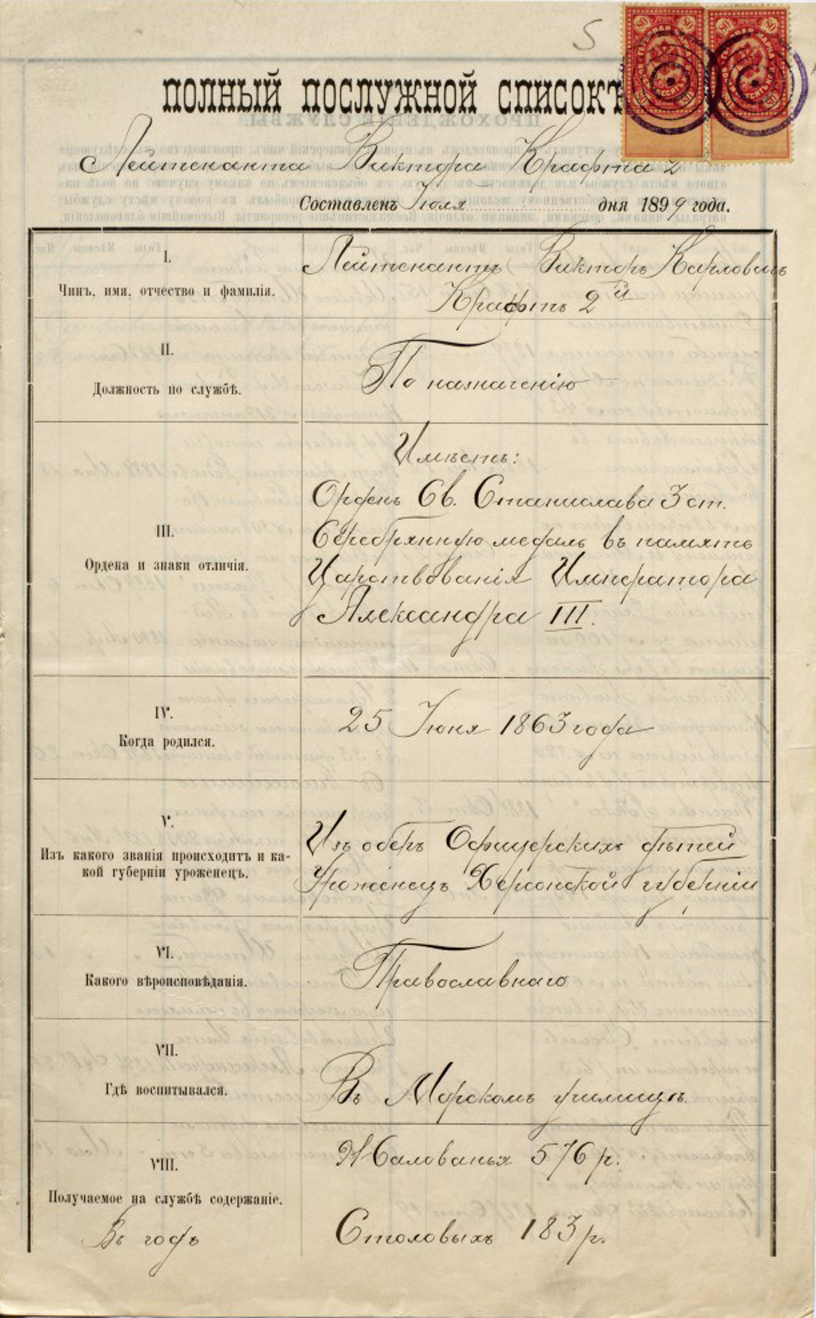 S
80 80 80 80
ПОЛНЫЙ ПОСЛУЖНОЙ СПИСОКЪ
Лейтенанта Виктора Крафта 2
Составленъ Іюля дня 1899 года.
I.
Чинъ, имя, отчество и фамилія.
Лейтенантъ Викторъ Карловичъ
Крафтъ 2й
II.
Должность по службѣ.
По назначенію
III.
Ордена и знаки отличія.
Имѣетъ:
Орденъ Св. Станислава 3 ст.
Серебрянную медаль въ память
Царствованія Императора
Александра III.
IV.
Когда родился.
25 Іюня 1863 года
V.
Изъ какого званія происходитъ и ка-
кой губерніи уроженецъ.
Изъ оберъ Офицерскихъ дѣтей
Уроженецъ Херсонской губерніи
VI.
Какого вѣроисповѣданія.
Православнаго
VII.
Гдѣ воспитывался.
Въ Морскомъ училищѣ.
VIII.
Получаемое на службѣ содержаніе.
Въ годъ
Жалованья 576 р.
Столовыхъ 183 р.